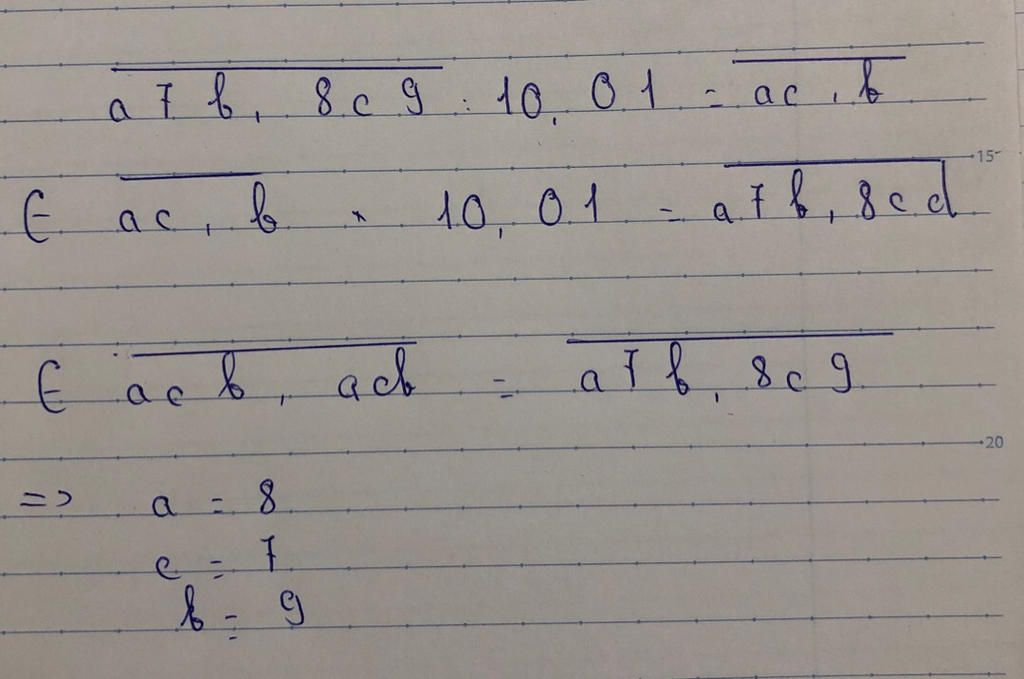 a7b, 8c9 : 10, 01 = ac, b
15
∈ ac, b × 10, 01 = a7b, 8cd
∈ acb, acb = a7b, 8c9
20
=> a = 8
c = 7
b = 9